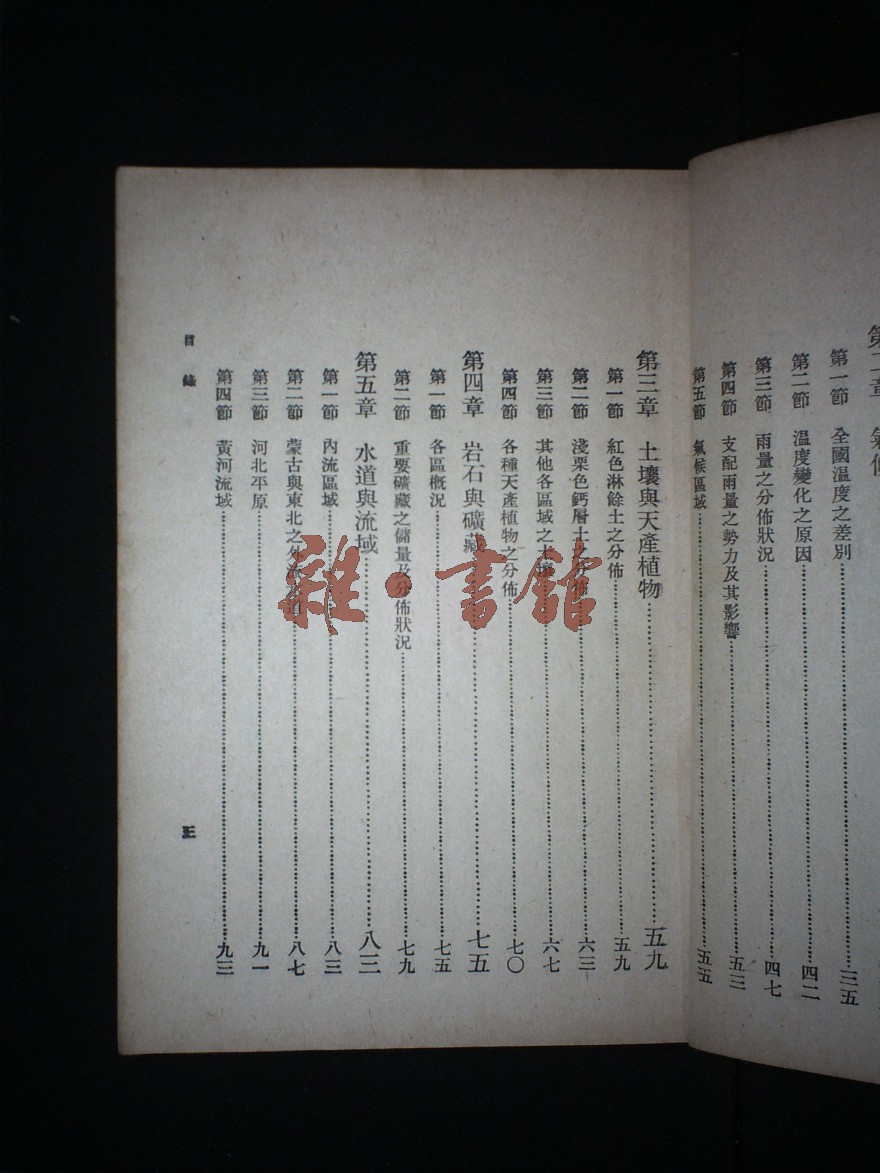 第二章 氣候
第一節 全國溫度之差別……三五
第二節 溫度變化之原因……四二
第三節 雨量之分佈狀況……四七
第四節 支配雨量之勢力及其影響……五三
第五節 氣候區域……五五
第三章 土壤與天產植物……五九
第一節 紅色淋餘土之分佈……五九
第二節 淺栗色鈣層土之分佈……六三
第三節 其他各區域之土壤……六七
第四節 各種天產植物之分佈……七〇
第四章 岩石與礦藏……七五
第一節 各區概況……七五
第二節 重要礦藏之儲量及分佈狀況……七九
第五章 水道與流域……八三
第一節 內流區域……八三
第二節 蒙古與東北之外流水道……八七
第三節 河北平原……九一
第四節 黃河流域……九三
目錄
三
雜·書館